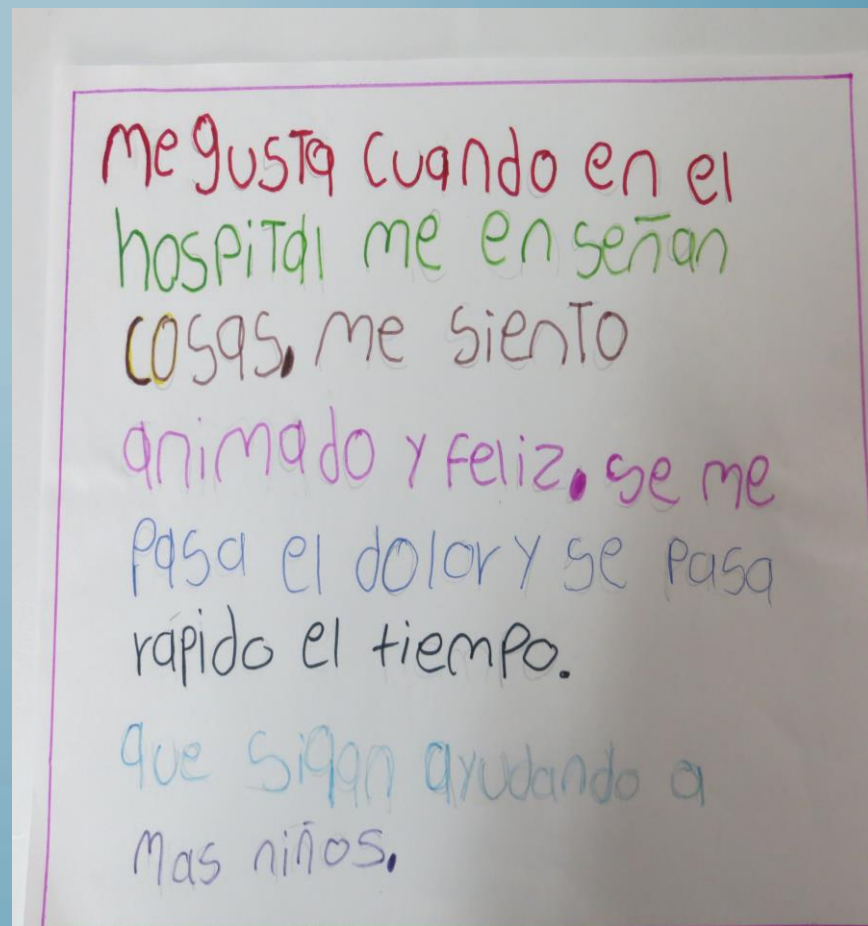 me gusta cuando en el
hospital me enseñan
cosas, me siento
animado y feliz, se me
pasa el dolor y se pasa
rápido el tiempo.
que sigan ayudando a
mas niños.